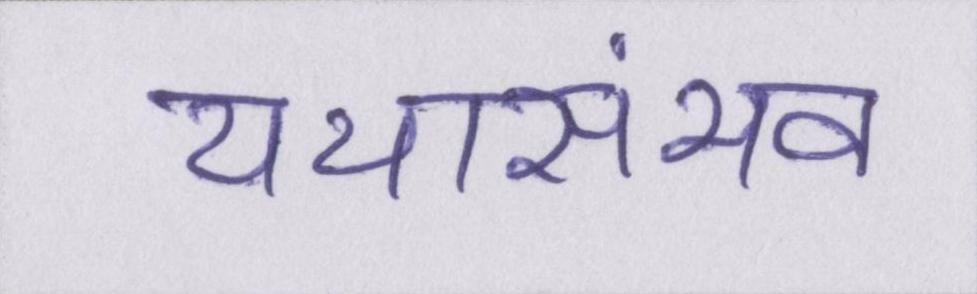 यथासंभव